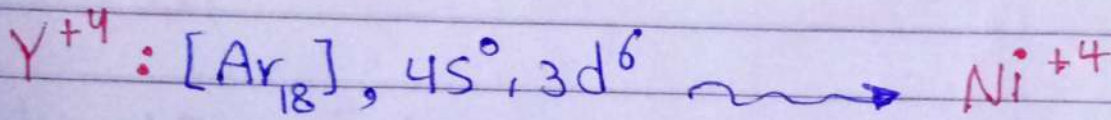 Y⁺⁴ : [Ar₁₈], 4S⁰, 3d⁶ → Ni⁺⁴